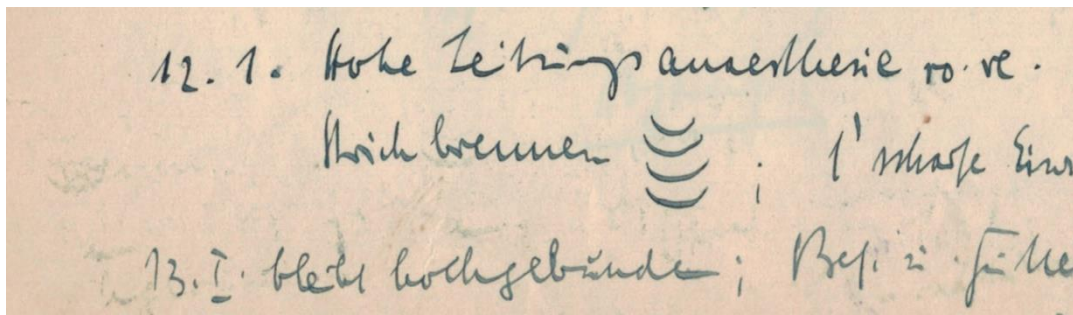 12. 1. Hohe Leitungsanaesthesie vo. re.
Strichbrennen ; 1' scharfe Einr
13. I. bleibt hochgebunden ; Bef. i.